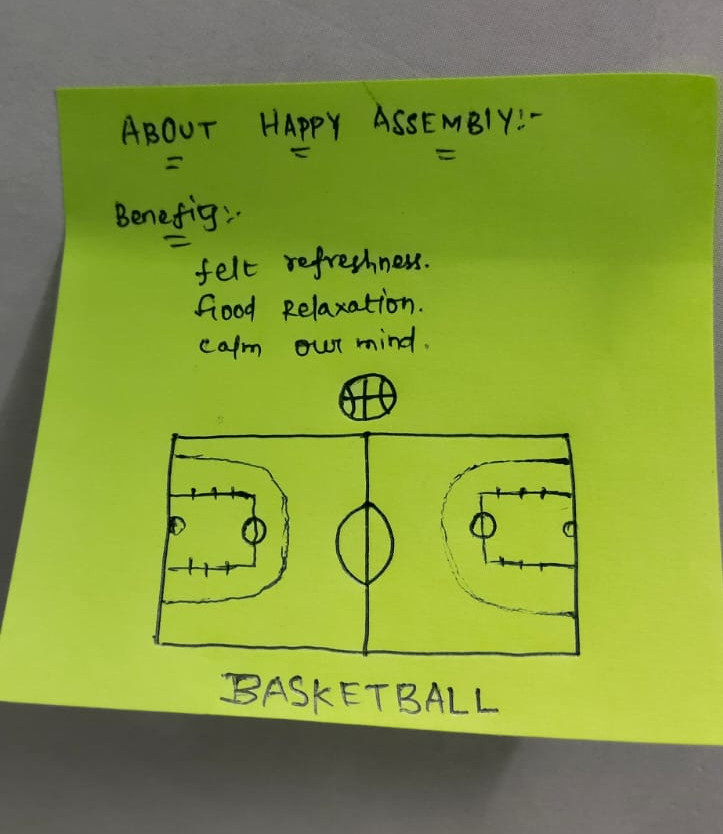 ABOUT HAPPY ASSEMBLY:-
Benefits:-
felt refreshness.
Good Relaxation.
calm our mind.
BASKETBALL